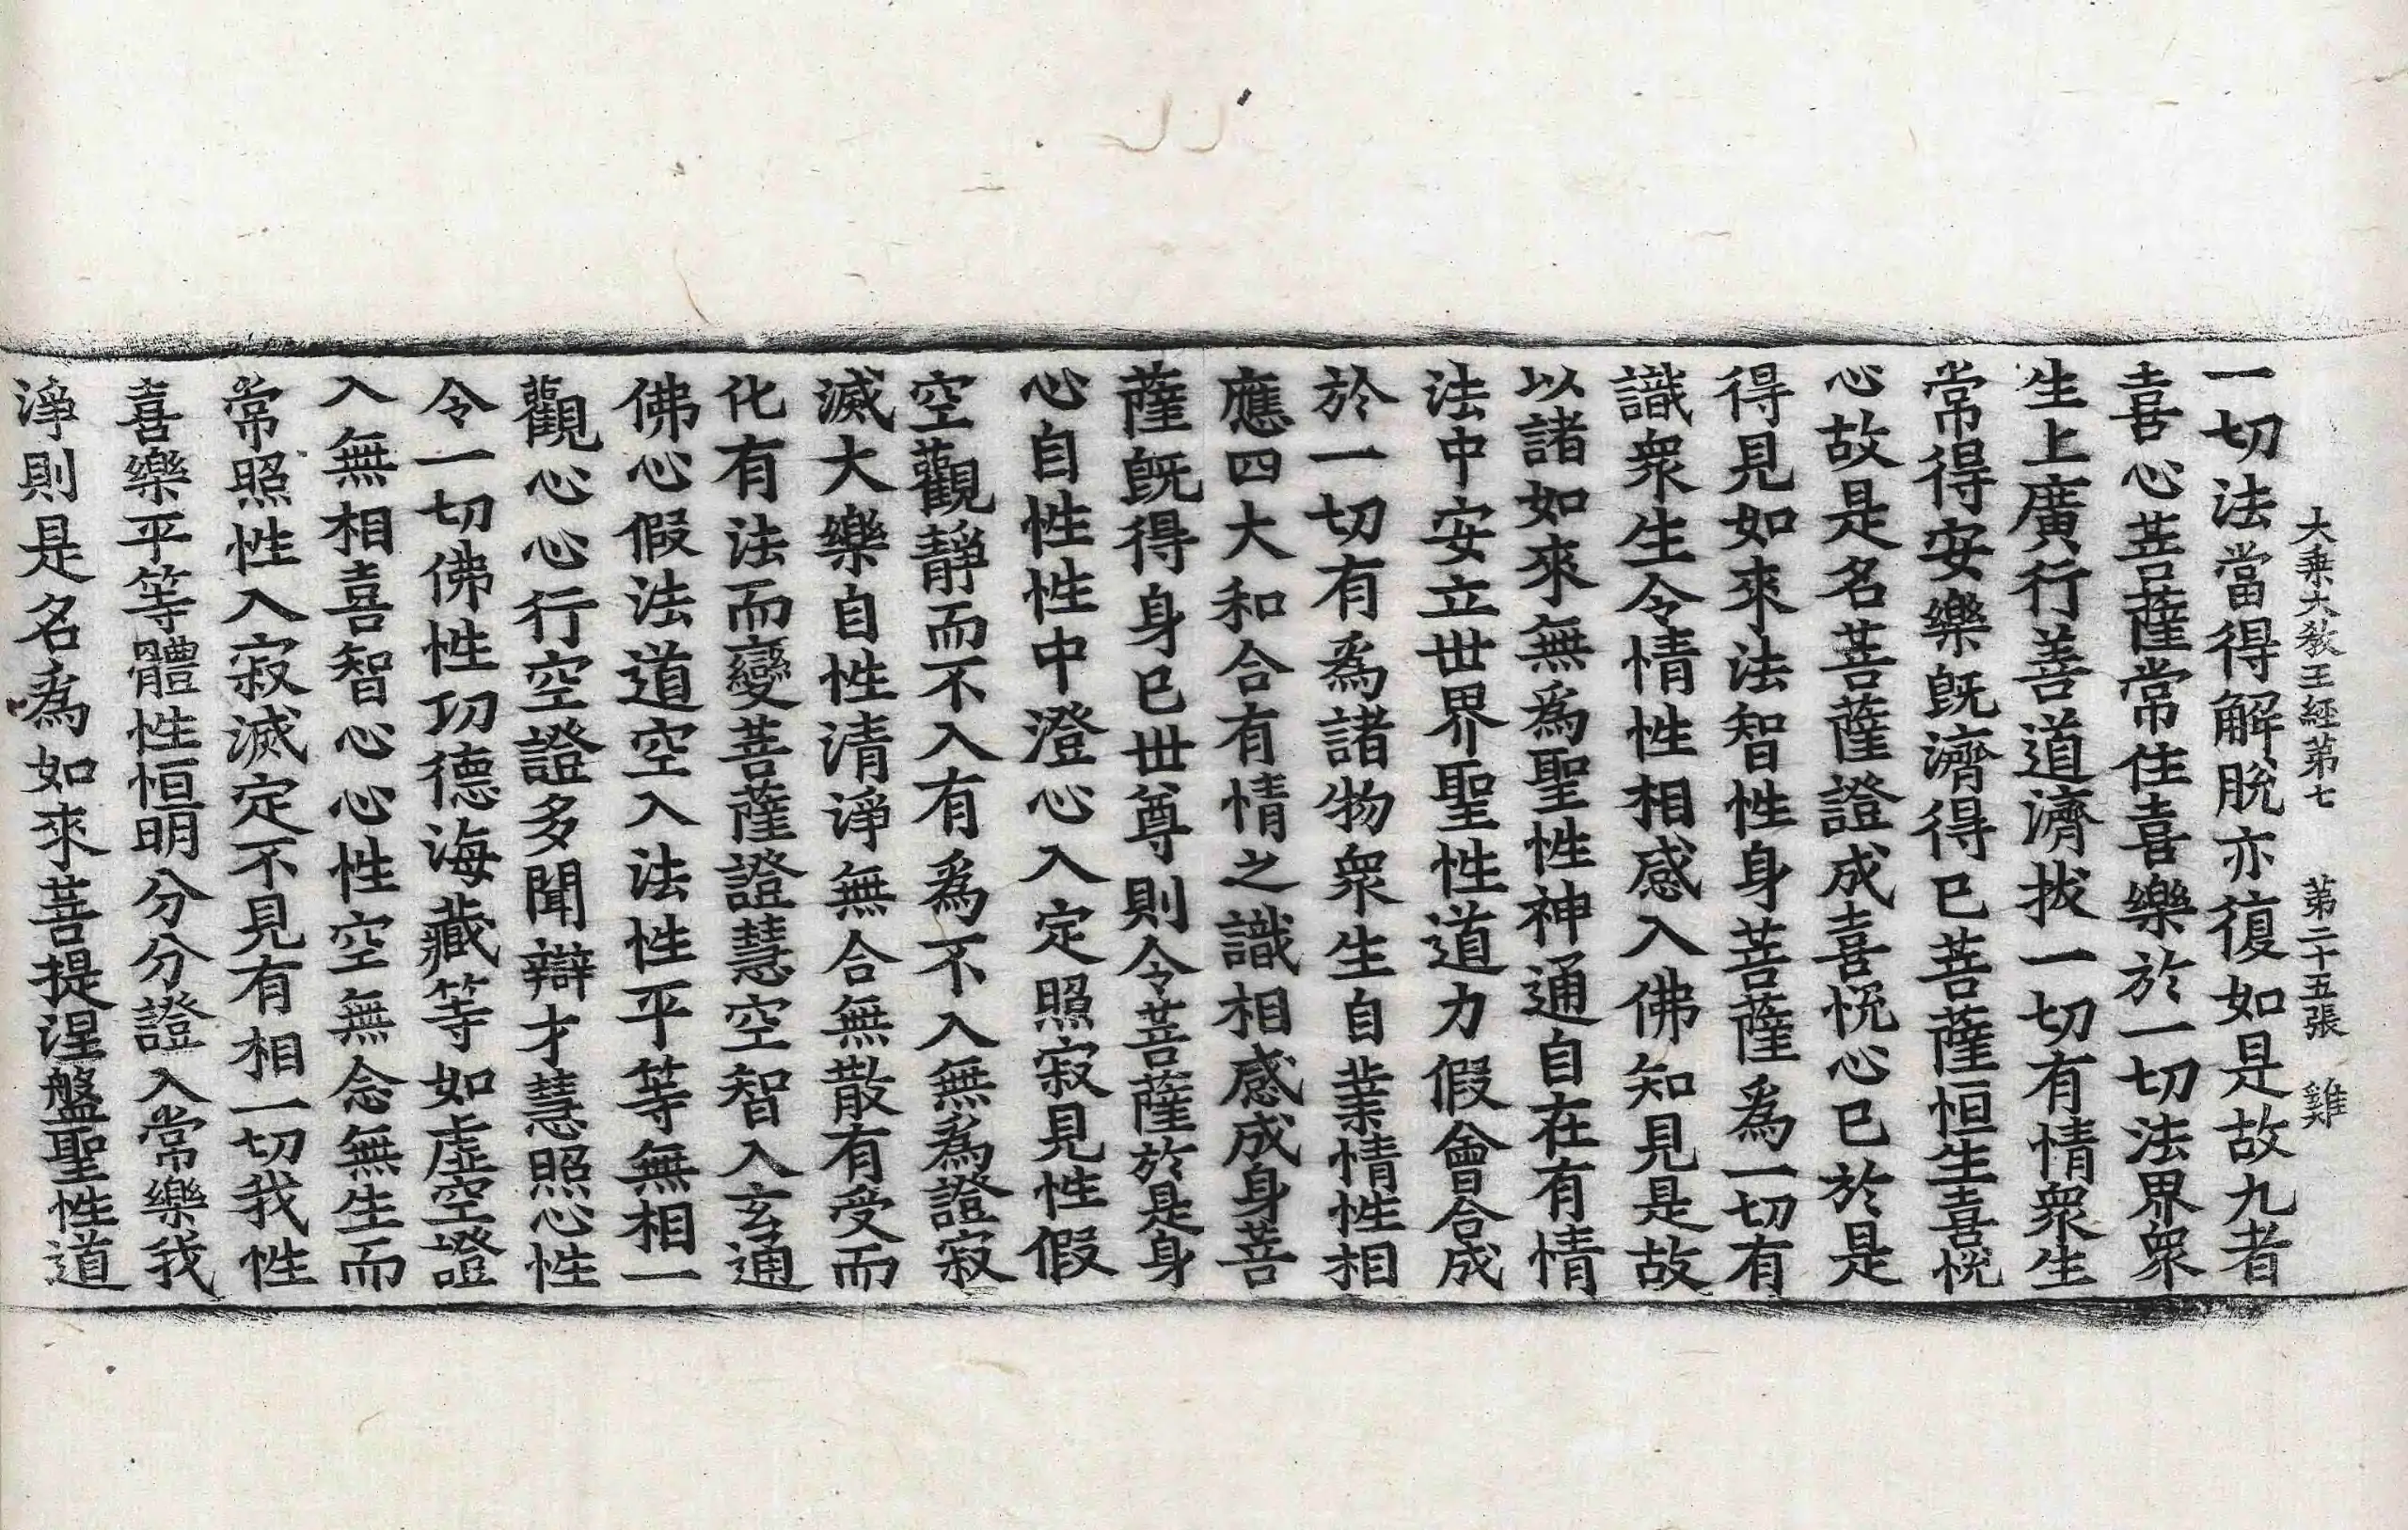 大乗大教王經第七 第二十五張 雞
一切法當得解脫亦復如是故九者
喜心菩薩常住喜樂於一切法界衆
生上廣行善道濟拔一切有情衆生
常得安樂旣濟得已菩薩恒生喜悅
心故是名菩薩證成喜悅心已於是
得見如來法智性身菩薩爲一切有
識衆生令情性相感入佛知見是故
以諸如來無爲聖性神通自在有情
法中安立世界聖性道力假會合成
於一切有爲諸物衆生自業情性相
應四大和合有情之識相感成身菩
薩旣得身已世尊則令菩薩於是身
心自性性中澄心入定照寂見性假
空觀靜而不入有爲不入無爲證寂
滅大樂自性清淨無合無散有受而
化有法而變菩薩證慧空智入玄通
佛心假法道空入法性平等無相一
觀心心行空證多聞辯才慧照心性
令一切佛性功德海藏等如虛空證
入無相喜智心心性空無念無生而
常照性入寂滅定不見有相一切我性
喜樂平等體性恒明分分證入常樂我
淨則是名爲如來菩提涅盤聖性道